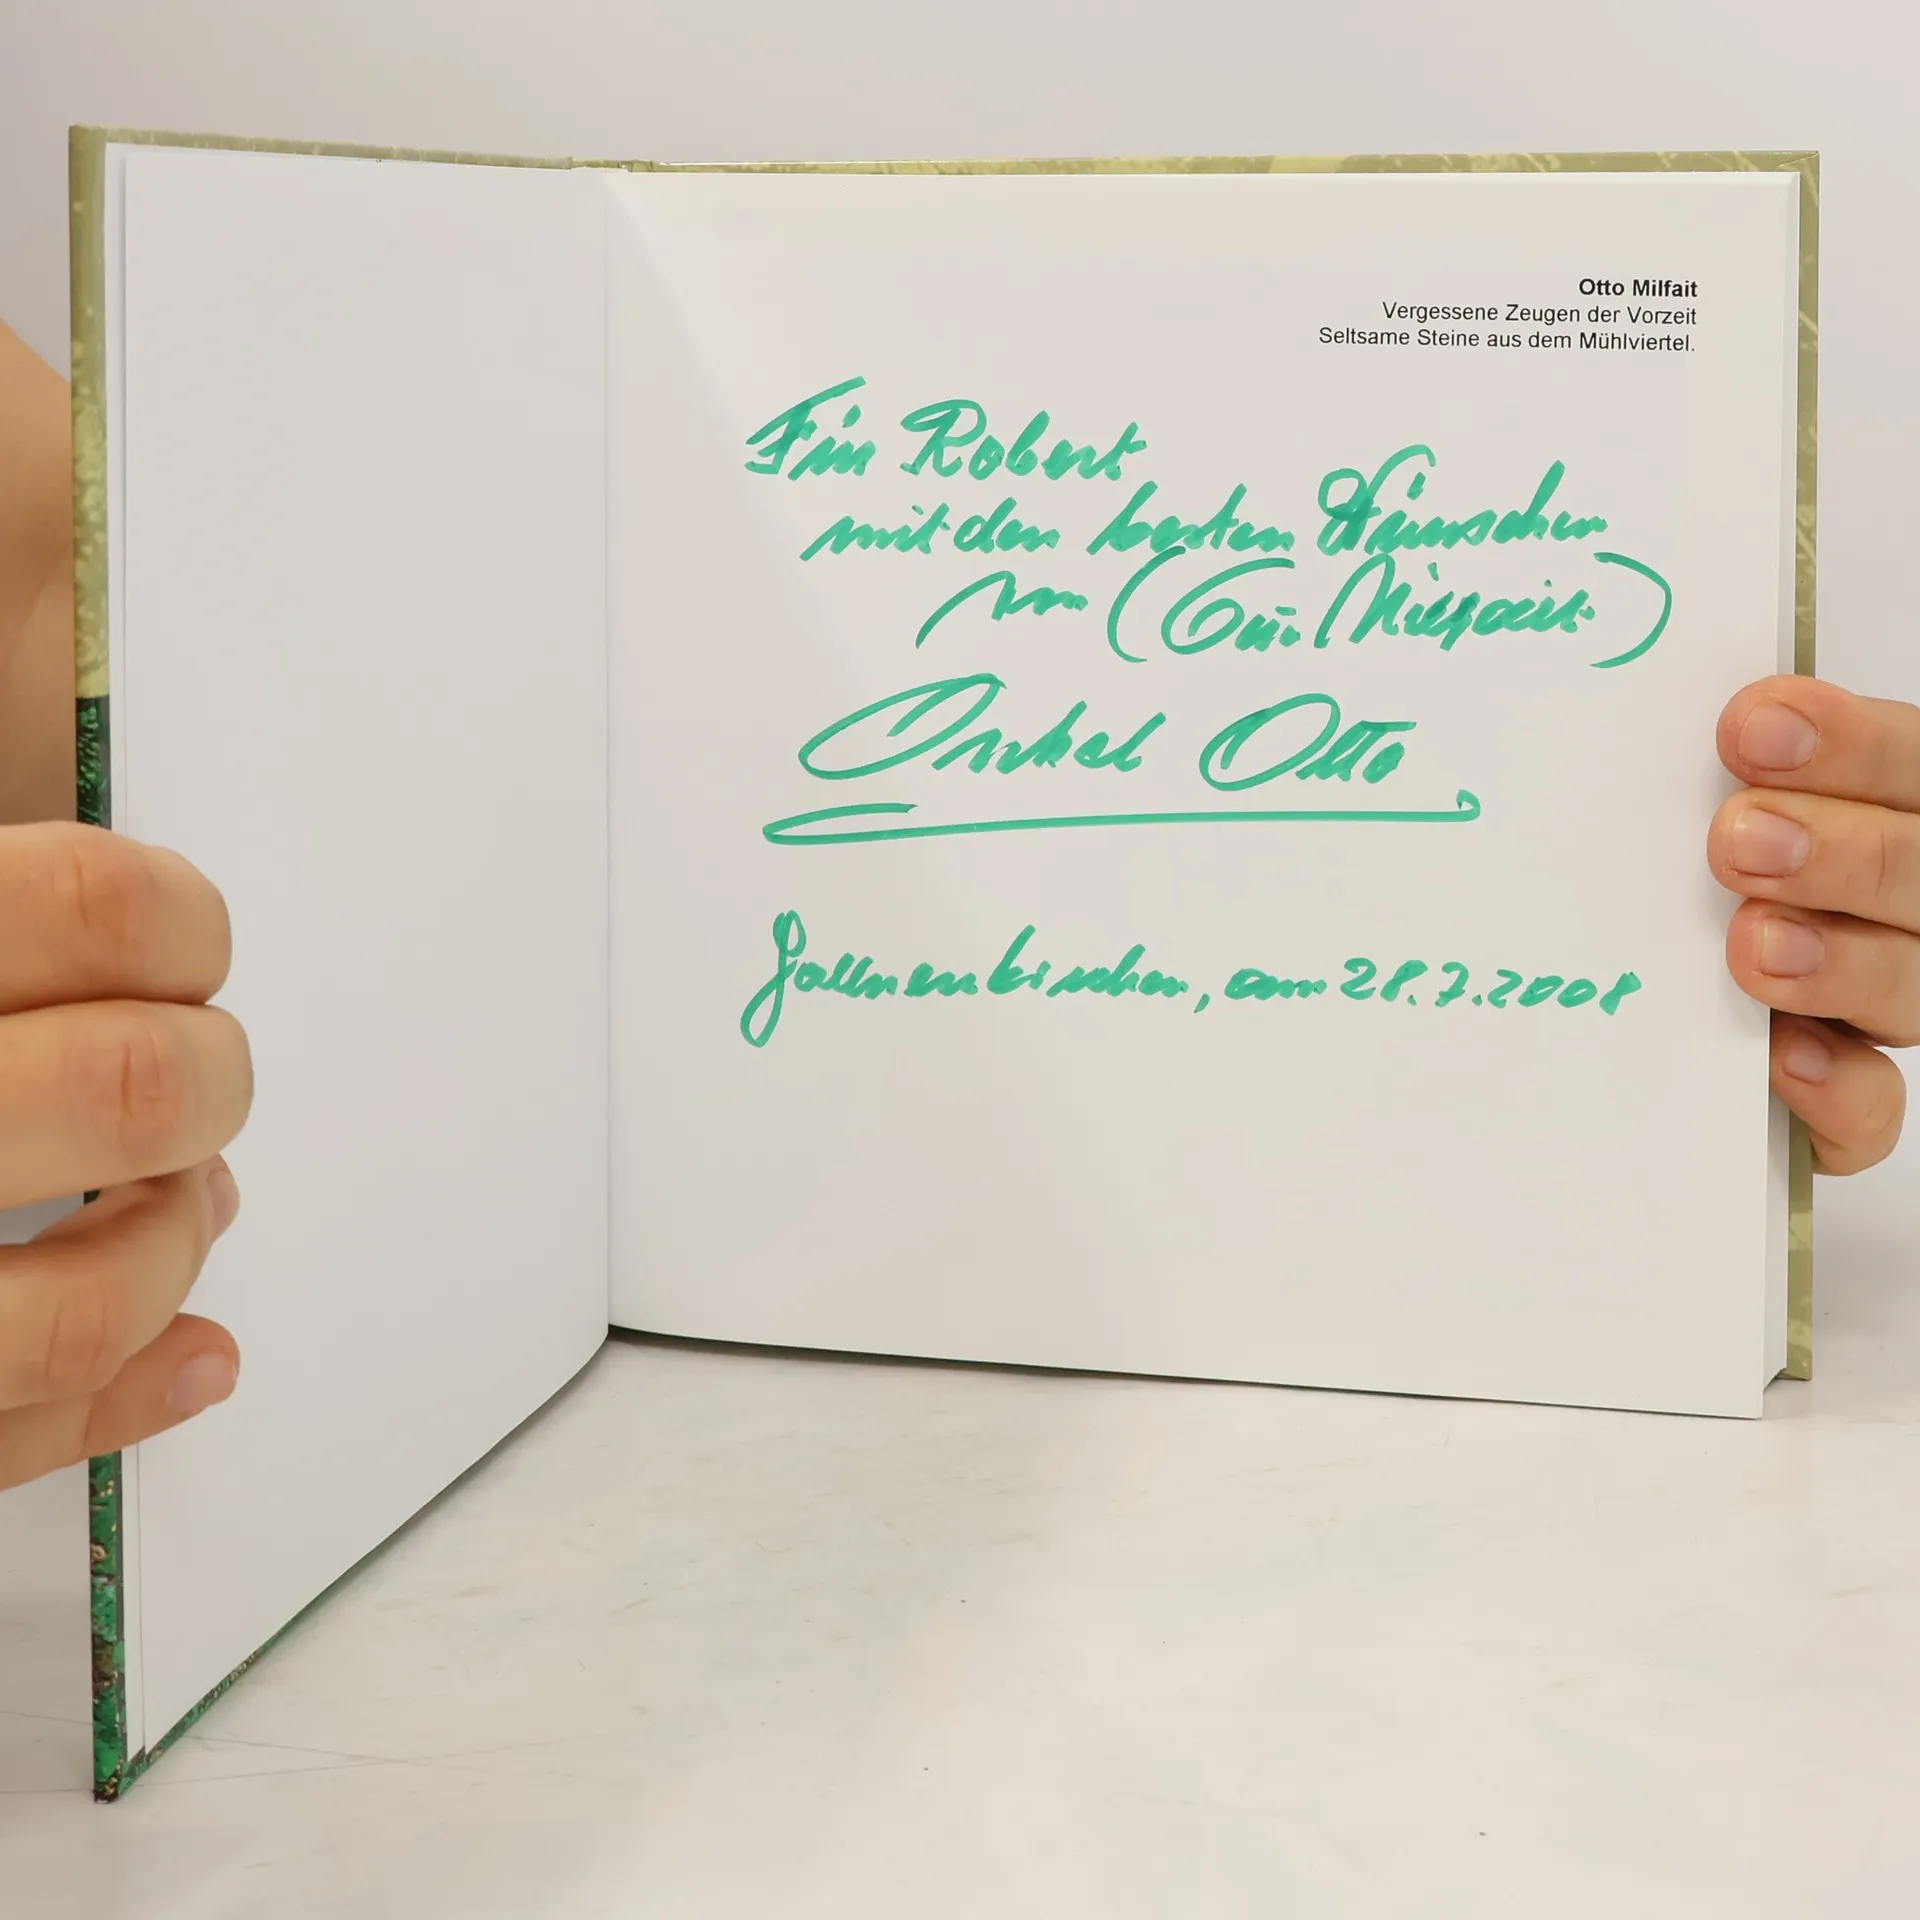 Otto Milfait
Vergessene Zeugen der Vorzeit
Seltsame Steine aus dem Mühlviertel.
Für Robert
mit den besten Wünschen
von ( Milfait )
Onkel Otto
Gallneukirchen, am 28.7.2008